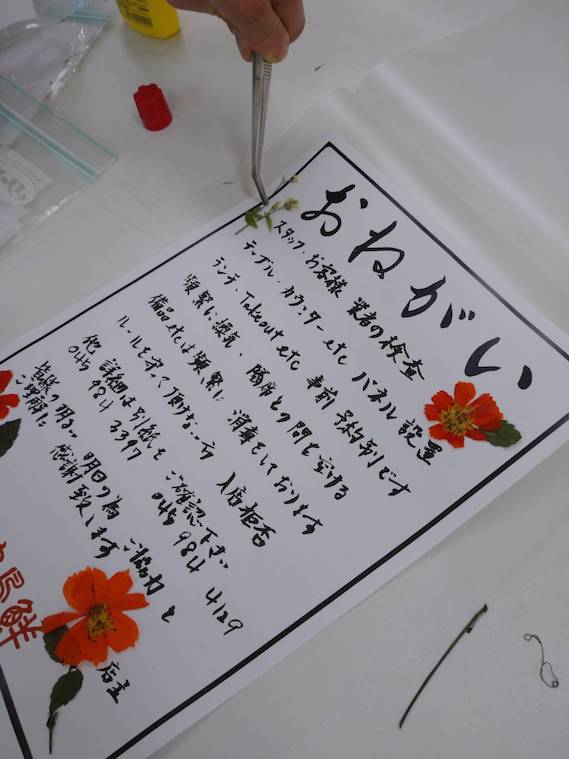 おねがい
スタッフ・お客様 業者の検査
テーブル・カウンター etc パネル 設置
ランチ、Takeout etc 事前 予約制です
頻繁に換気、隣席との間を空ける
備品etcは頻繁に 消毒をしております
ルールを守って頂けない方 入店拒否
他 詳細は引紙を ご確認下さい
045 984 3397 045 984 4129
皆様の明るい 明日の為 ご協力と
ご理解に 感謝致します
店主
鮮